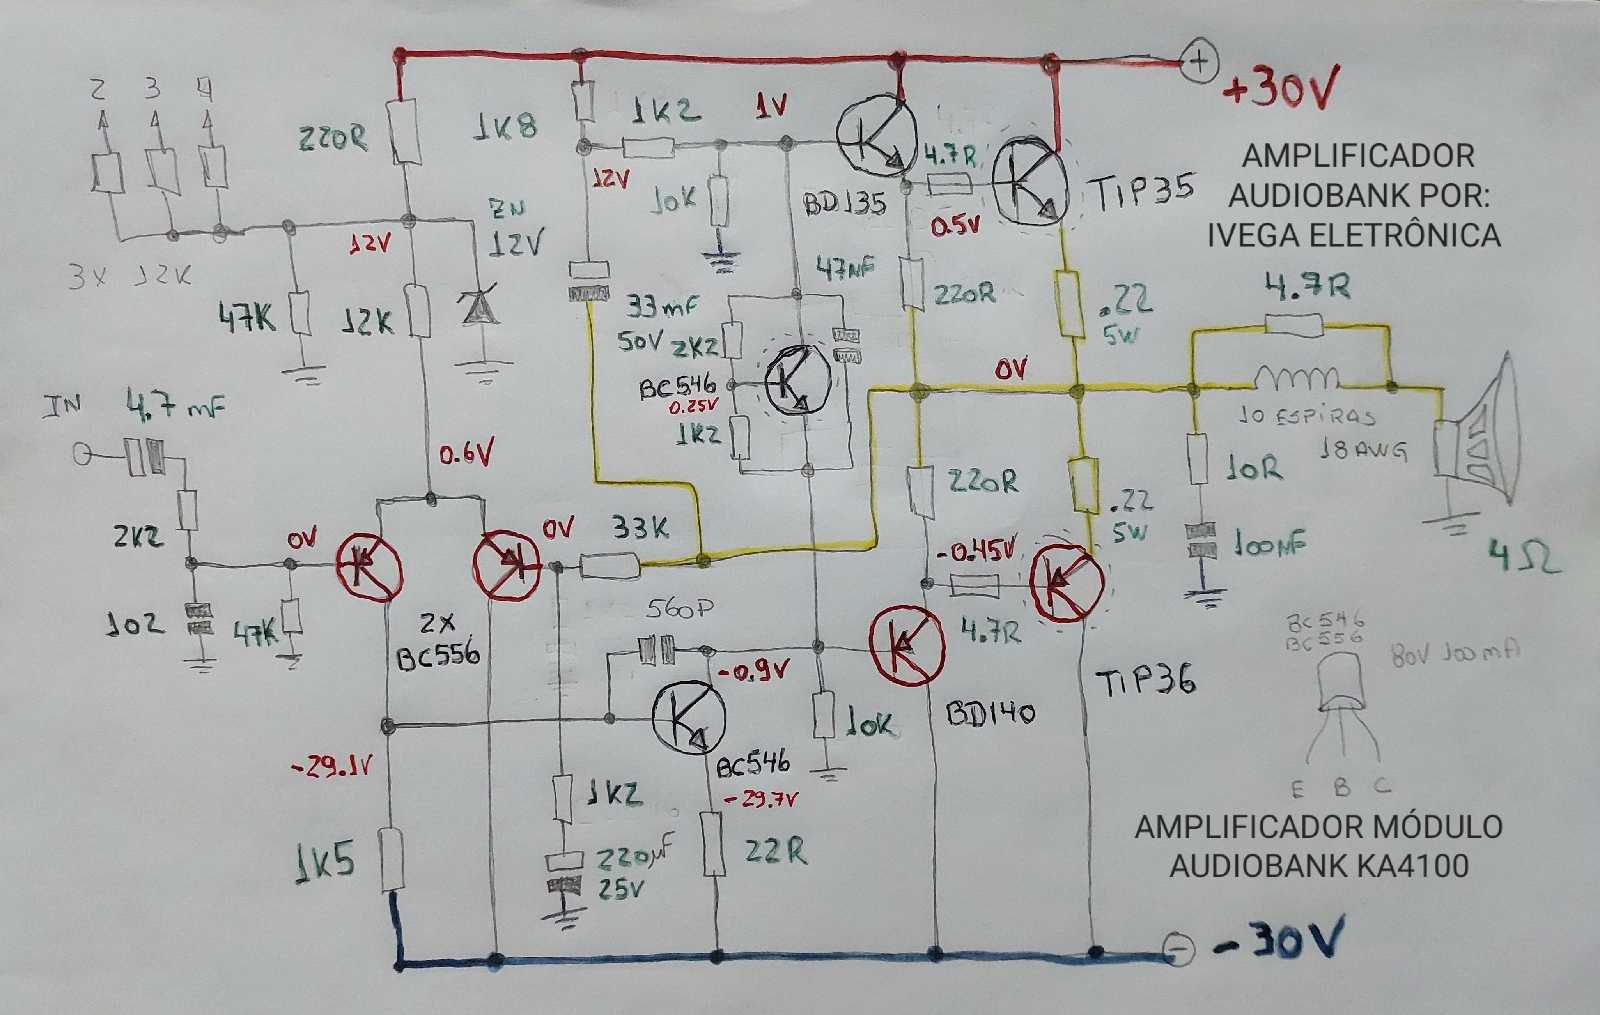 2 3 4
3X 12K
220R
1K8
1K2
1V
+
+30V
AMPLIFICADOR
AUDIOBANK POR:
IVEGA ELETRÔNICA
12V
ZN
12V
12V
10K
BD135
4.7R
0.5V
TiP35
47K
12K
33mF
50V
2K2
BC546
0.25V
1K2
47NF
220R
.22
5W
4.7R
0V
10 ESPIRAS
18 AWG
4Ω
IN
4.7 mF
2K2
102
47K
0V
0.6V
2X
BC556
0V
33K
560P
-0.9V
220R
-0.45V
4.7R
.22
5W
10R
100NF
BC546
BC556
80V 100mA
E B C
TiP36
BD140
10K
-29.1V
1K5
BC546
-29.7V
22R
1K2
220µF
25V
AMPLIFICADOR MÓDULO
AUDIOBANK KA4100
-
-30V